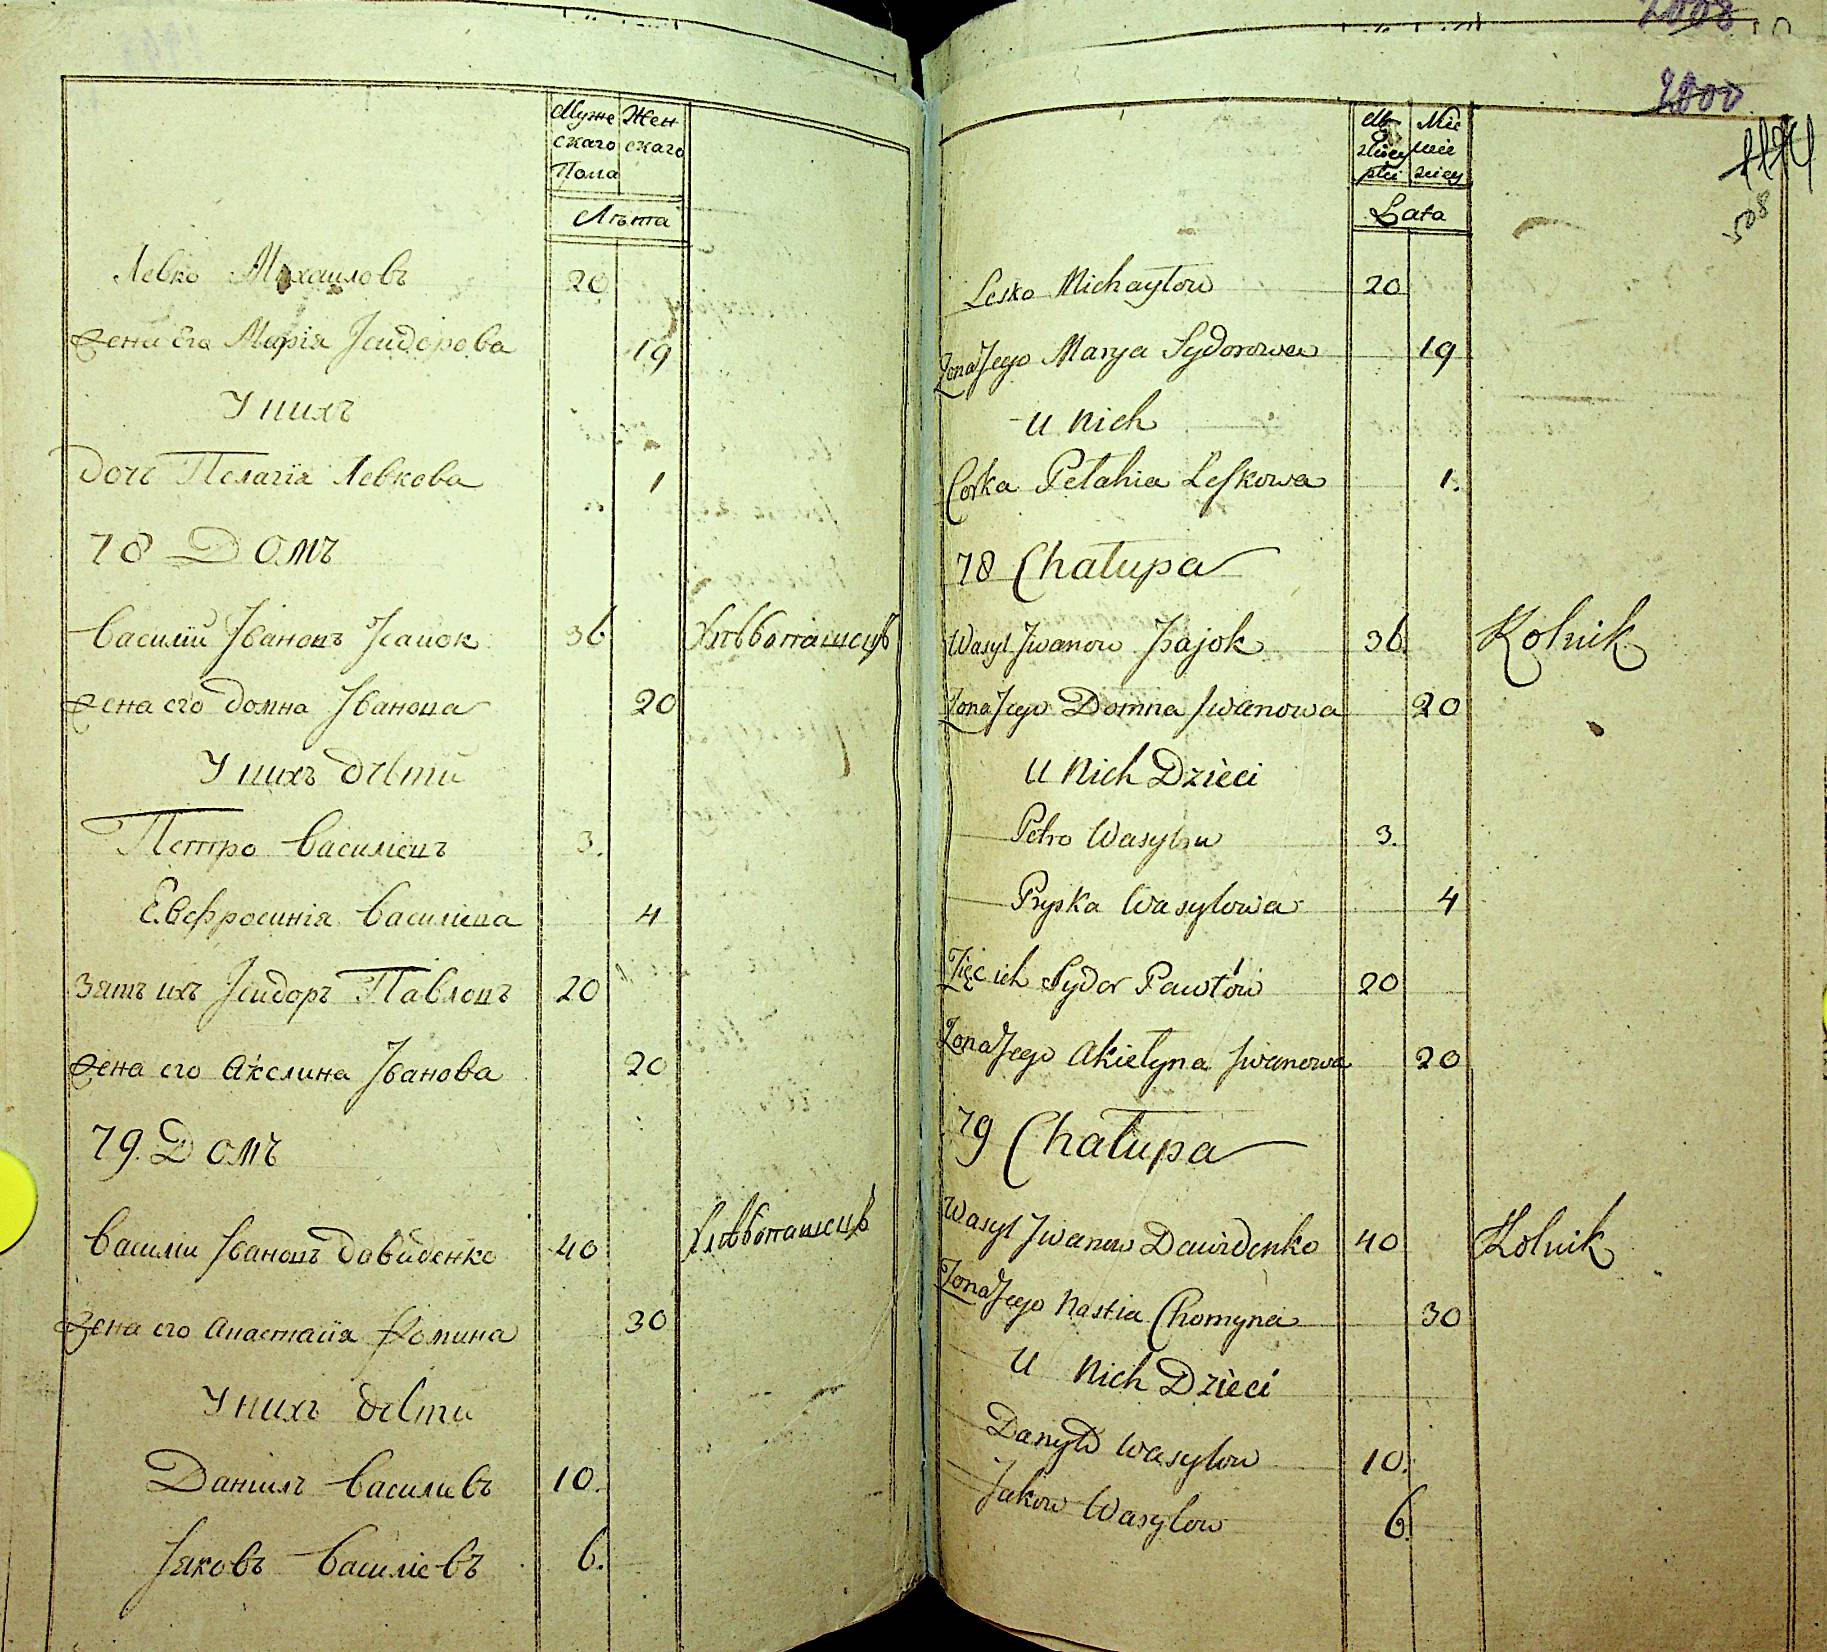 Муже Жен
скаго скаго
Пола
Лѣта
Левко Михаиловъ 20
Жена Его Марія Ісидорова 19
У нихъ
Дочь Пелагія Левкова 1
78 Домъ
Василій Івановъ Ісаиок 36 Хлѣбопашецъ
Жена его Домна Іванова 20
У нихъ дѣти
Петро Василіевъ 3.
Евфросинія Василіева 4
Зять ихъ Ісидоръ Павловъ 20
Жена его Акелина Іванова 20
79. Домъ
Василіи Івановъ Давиденко 40 Хлѣбопашецъ
Жена его Анастасія Фомина 30
У нихъ дѣти
Даніилъ Василиевъ 10.
Іяковъ Василіевъ 6.
2008
2000
508
Lata
Lesko Michayłow 20
Zona Jego Marya Sydorowa 19
u Nich
Corka Pełahia Leskowa 1.
78 Chałupa
Wasyl Jwanow Jsajok 36. Rolnik
Zona Jego Domna Jwanowa 20
u Nich Dzieci
Petro Wasylow 3.
Pryska Wasylowa 4
Zięc ich Sydor Pawłow 20
Zona Jego Akiełyna Jwanowa 20
79 Chałupa
Wasyl Jwanow Dawidenko 40 Rolnik
Zona Jego Nastia Chomyna 30
u Nich Dzieci
Danyło Wasylow 10.
Jakow Wasylow 6.